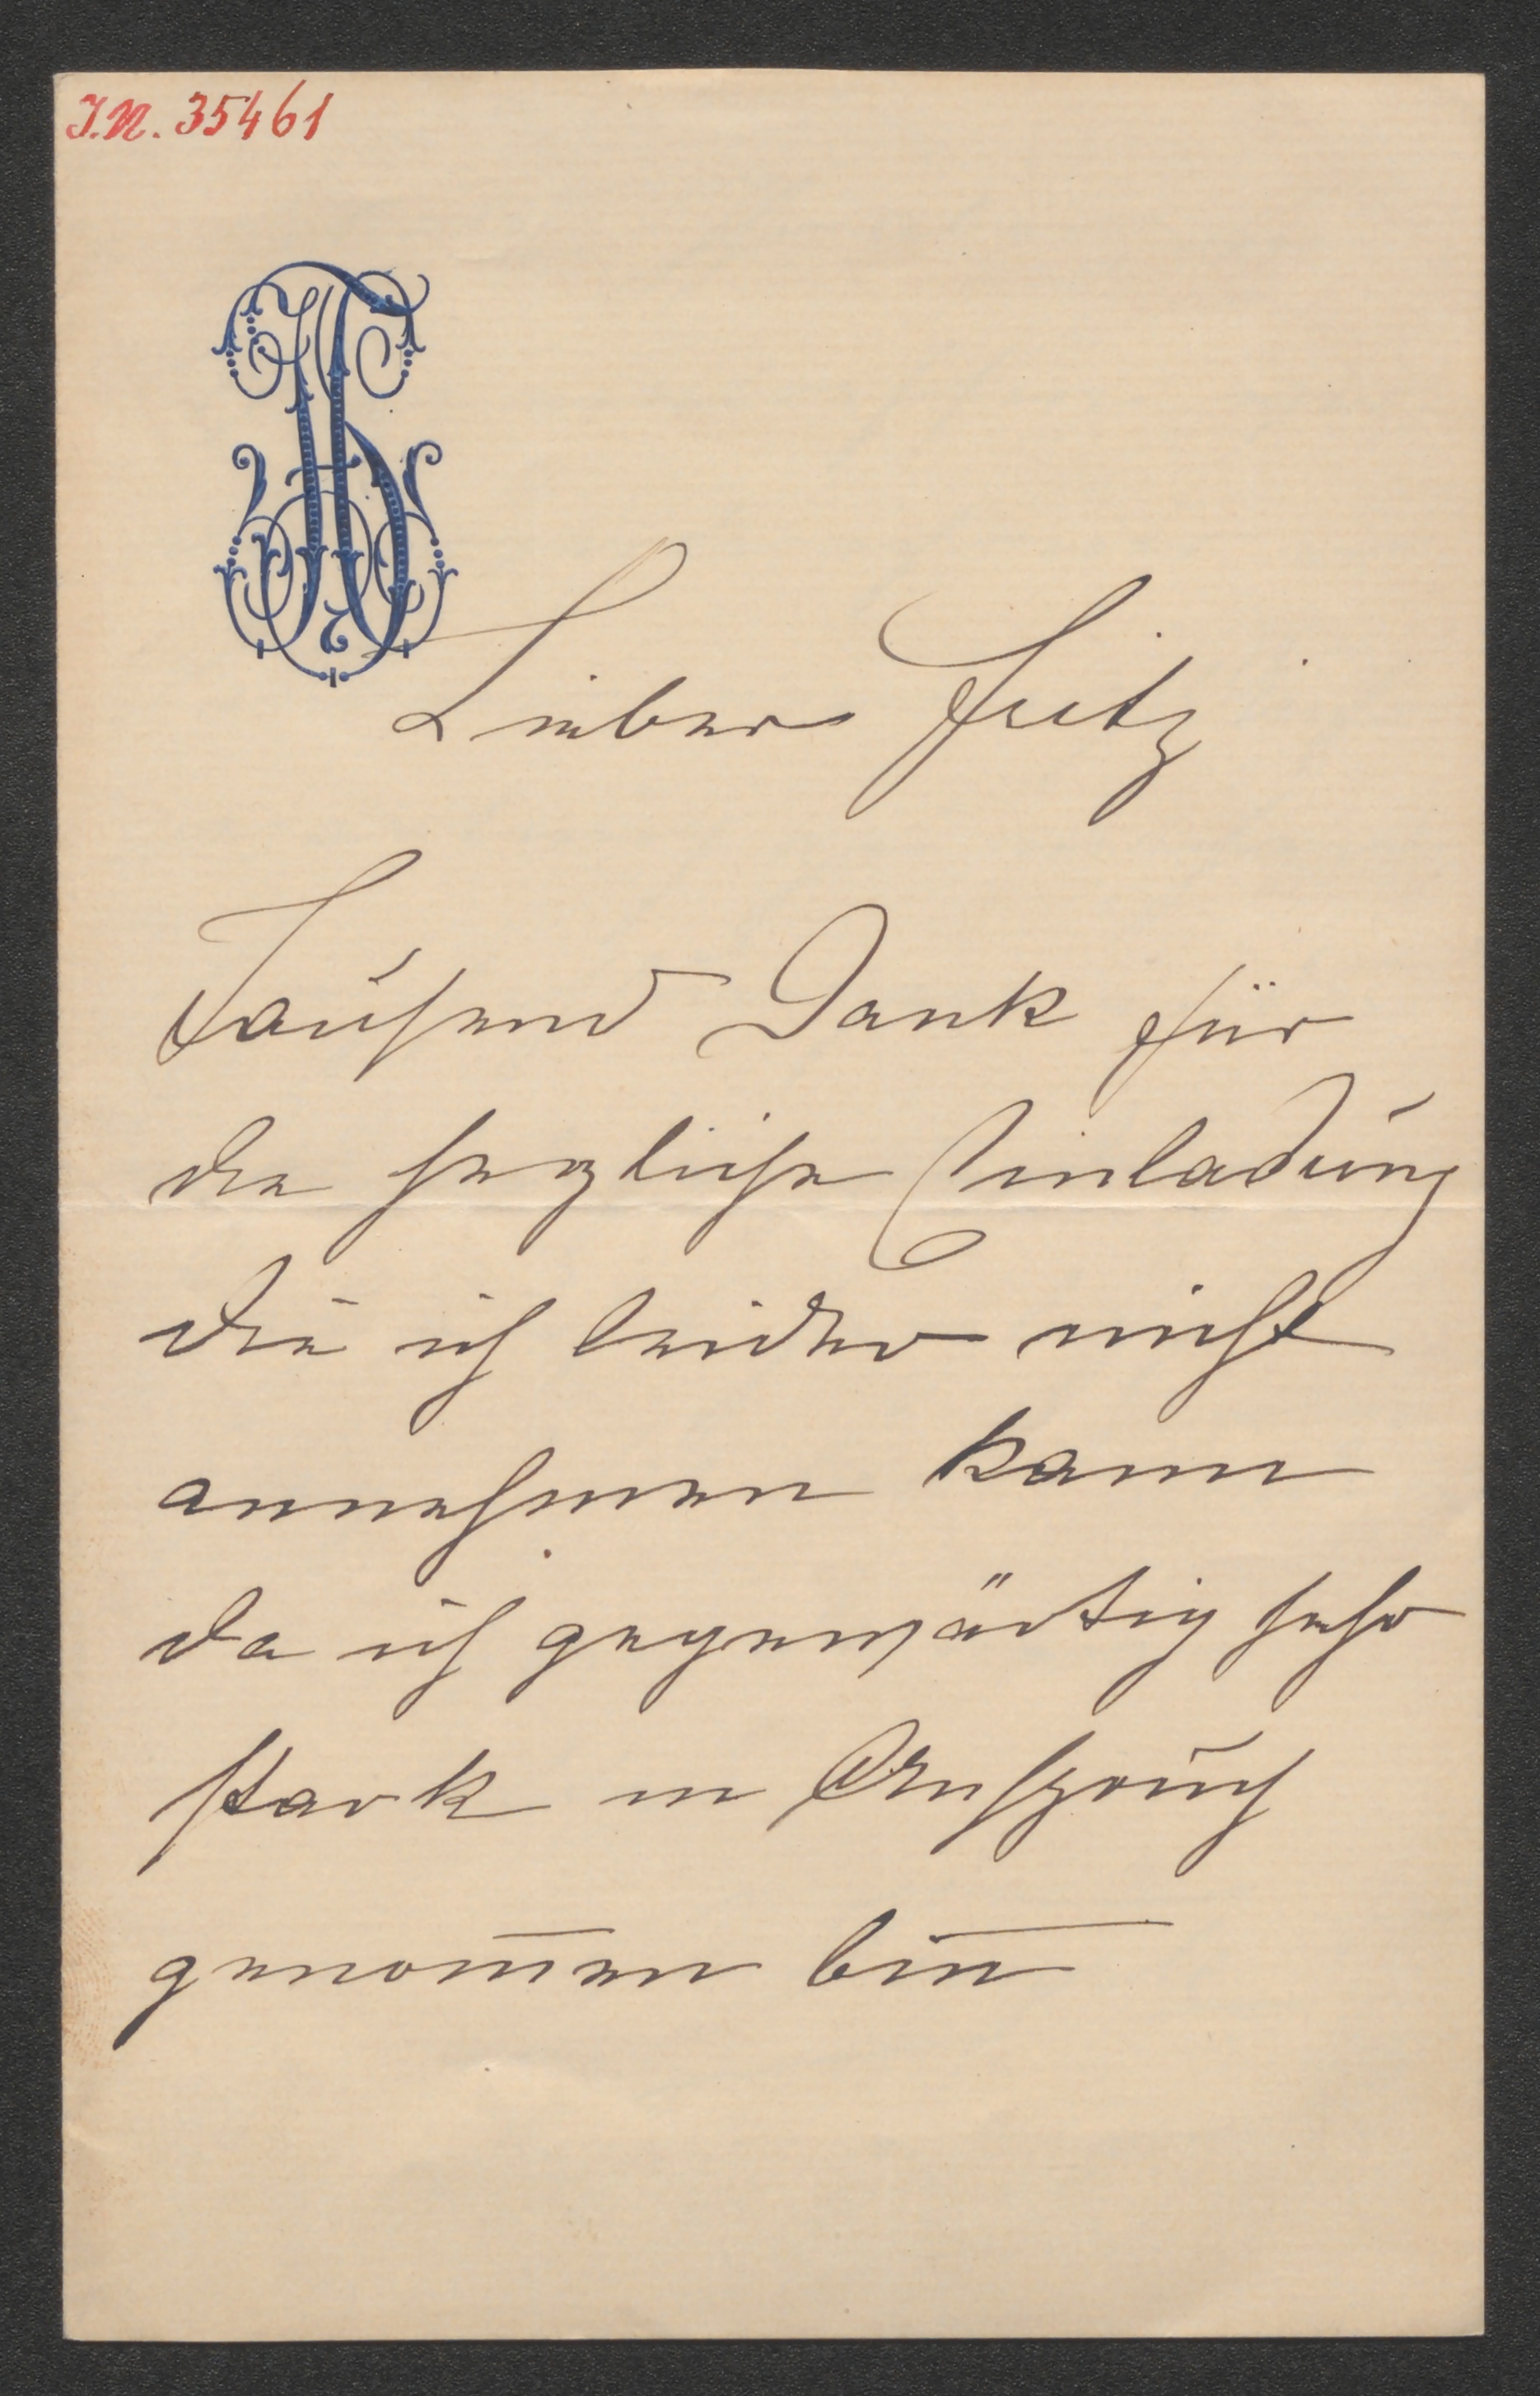 I.N. 35461
Lieber Fritz
Tausend Dank für
die herzliche Einladung
die ich leider nicht
annehmen kann
da ich gegenwärtig sehr
stark in Anspruch
genom̄en bin